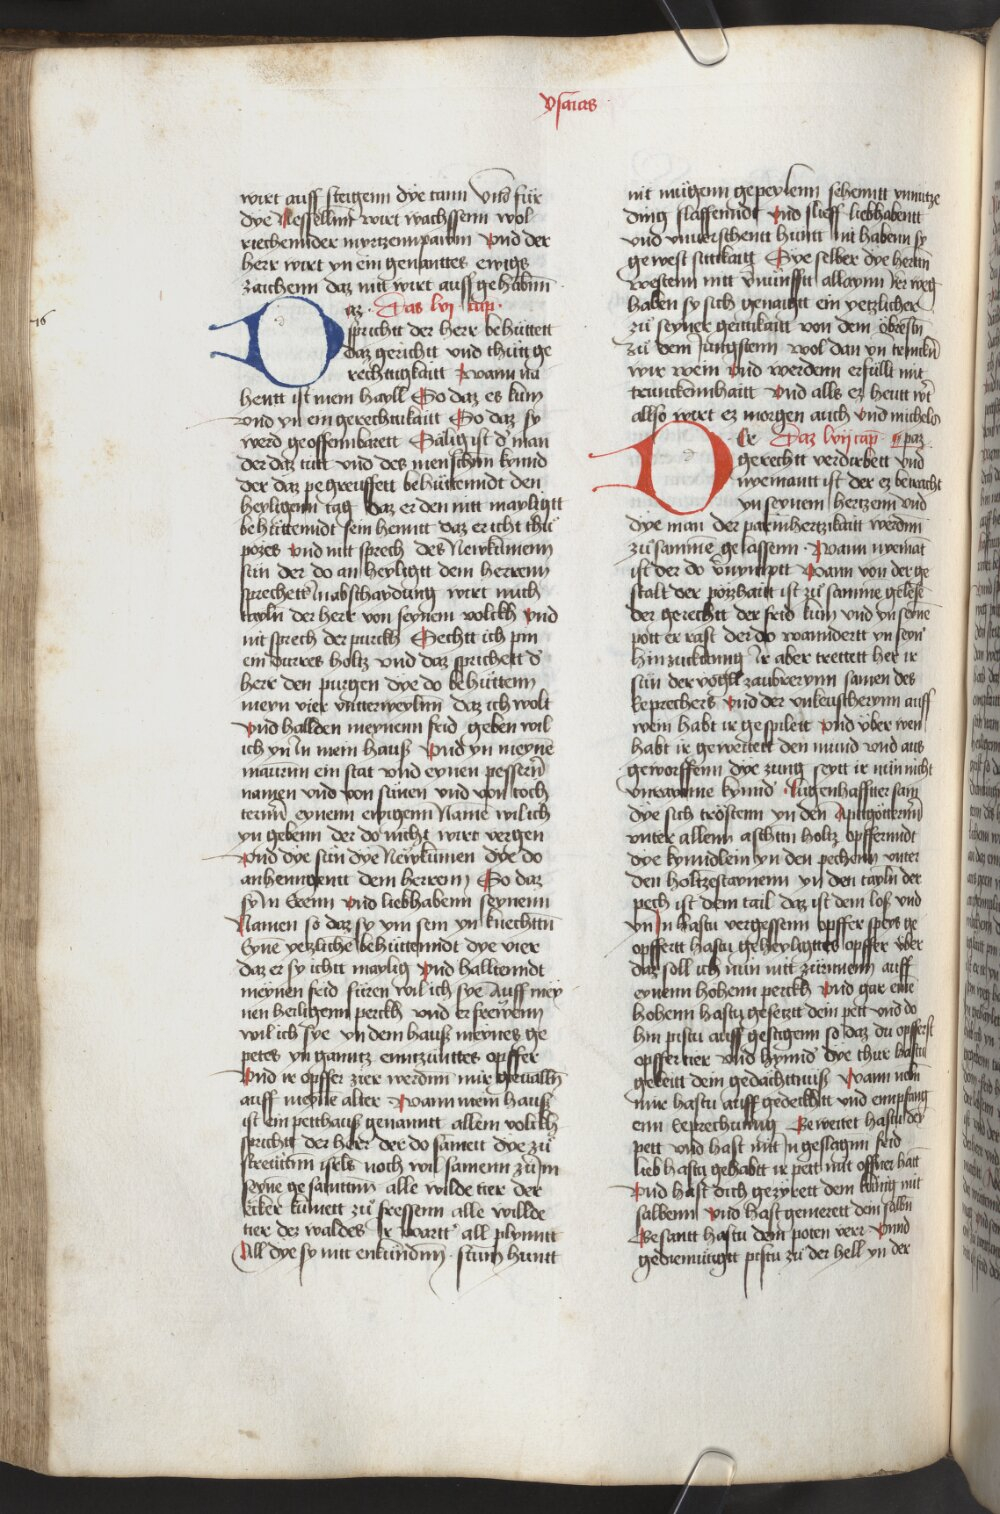 ysaias
wirt auff steigenn dye tann Und für
dye Nessellnn wirt wachssenn wol
riechennder myrtzempawm Und der
herr wirt yn ein genanttes ewigs
zaichenn daz nitt wirt auff gehabnn
az · Das lvj · cap ·
16
spricht der herr behüttett
daz gericht und thütt ge
rechtigkaitt Wann na
hentt ist mein hayll So daz es kum
Und yn ein gerechtikaitt So daz sy
werd geoffennbarett Sälig ist d' man
der daz tutt und des menschnn kynnd
der daz pegreuffett behüttenndt den
heyligenn tag daz er den nitt mayligtt
behüttenndt sein henntt daz er icht thü
pözes Und nitt sprech des Newkümenn
sün der do an heyligtt dem herrenn
sprechett In abschaydung wirt mich
taylnn der herr von seynem volckh Und
nit sprech der purckh Sechtt ich pin
ein dürres holtz und daz sprichett d'
herr den purgen dye do behüttenn
meyn vier
daz ich wolt
Und hallden meynenn frid geben wil
ich yn In mein hauß Und yn meyne
maurnn ein stat und eynen pessern
namen und von sünen und von töch
ternn eynenn ewigenn Name wil ich
yn gebenn der do nicht wirt vergen
Und dye sün dye Newkümen dye do
anhenngentt dem herrenn So daz
sy In Erenn Und liebhabenn seynenn
Namen so daz sy ym sein yn knechttn
Eyne yetzliche behüttenndt dye vier
daz er sy ichtt maylig Und halltenndt
meynen frid füren wil ich sye Auff mey
nen heiligenn perckh und erfrewenn
wil ich sye yn dem hauß meynes ge
petes yn ganntz enntzünttes opffer
Und ir opffer zier werdnn mir geuallnn
auff meyne alter Wann mein hauß
ist ein petthauß genanntt allem volckh
spricht der herr der do samett dye zü
strewttnn isrls noch wil samenn zü im
seyne gesamttnn alle wilde tier der
ecker kumett zu fressenn alle willde
tier dez waldes Ir wartt' all plynntt
All dye sy nitt enkünndnn · stum huntt
nit mügenn gepeylenn sehenntt unnütze
ding slaffenndt Und slieff liebhabentt
und unuerschemtt huntt nit habenn sy
gewest settikaitt Dye selber dye herttn
westenn nitt vernünfftt allaynn Irr weg
haben sy sich genaigtt ein yetzlicher
zü seyner geittikaitt von dem öbrestn
zü dem Jüngstenn wol dan yn trinckn
wir wein Und werdenn erfüllt mit
trunckennhaitt Und alls ez heutt ist
allso wirt ez morgen auch Und michels
Er Daz lvij cap · paz
gerechtt verdirbett und
nyemantt ist der ez betracht
yn seynem hertzenn Und
dye man der parmhertzikaitt werdnn
zü samme gelassenn · Wann nyemat
ist der do vernymptt Wann von der ge
stalt der pozhaitt ist zü samme gelese
der gerechtt der frid kum und yn seyne
pett er rast der do wanndertt yn seyn'
hinzuckunng Ir aber trettett her ir
sün der vogel zaubrerynn samen des
Eeprechers Und der unkeuscherynn auff
wem habt ir gespilett Und über wen
habt ir geweitett den mund und aus
geworffenn dye zung seytt ir nün nicht
unraynne kynnd · lugenhafftter sam
dye sich tröstenn yn den Aptgötternn
unter allem aschtin holtz opffernndt
dye kynndlein yn den pechenn unter
den holtzestaynenn yn den tayln der
pech ist dem tail daz ist dem loß und
yn In hastu vergessenn opffer speys ge
opffertt hastu geheyligttes opffer Über
daz soll ich nün nitt zürnnenn auff
eynenn hohenn perckh Und gar eine
hohenn hastu gesetztt dein pett und do
hin pistu auff gestigenn so daz du opfferst
opffer tier Und hynnd' dye thür hastu
geleitt dein gedächttnuß Wann nebn
mir hastu auff gedeckhtt und empfang
enn Eeprechunng Geweitet hastu dey
pett und hast mitt In geslagnn frid
lieb hastu gehabtt ir pett mit offner hatt
Und hast dich gezyrett dem künig mit
salbenn Und hast gemerett dein salbn
Gesantt hastu dein poten verr Unnd
gediemüttigtt pistu zü der hell yn der